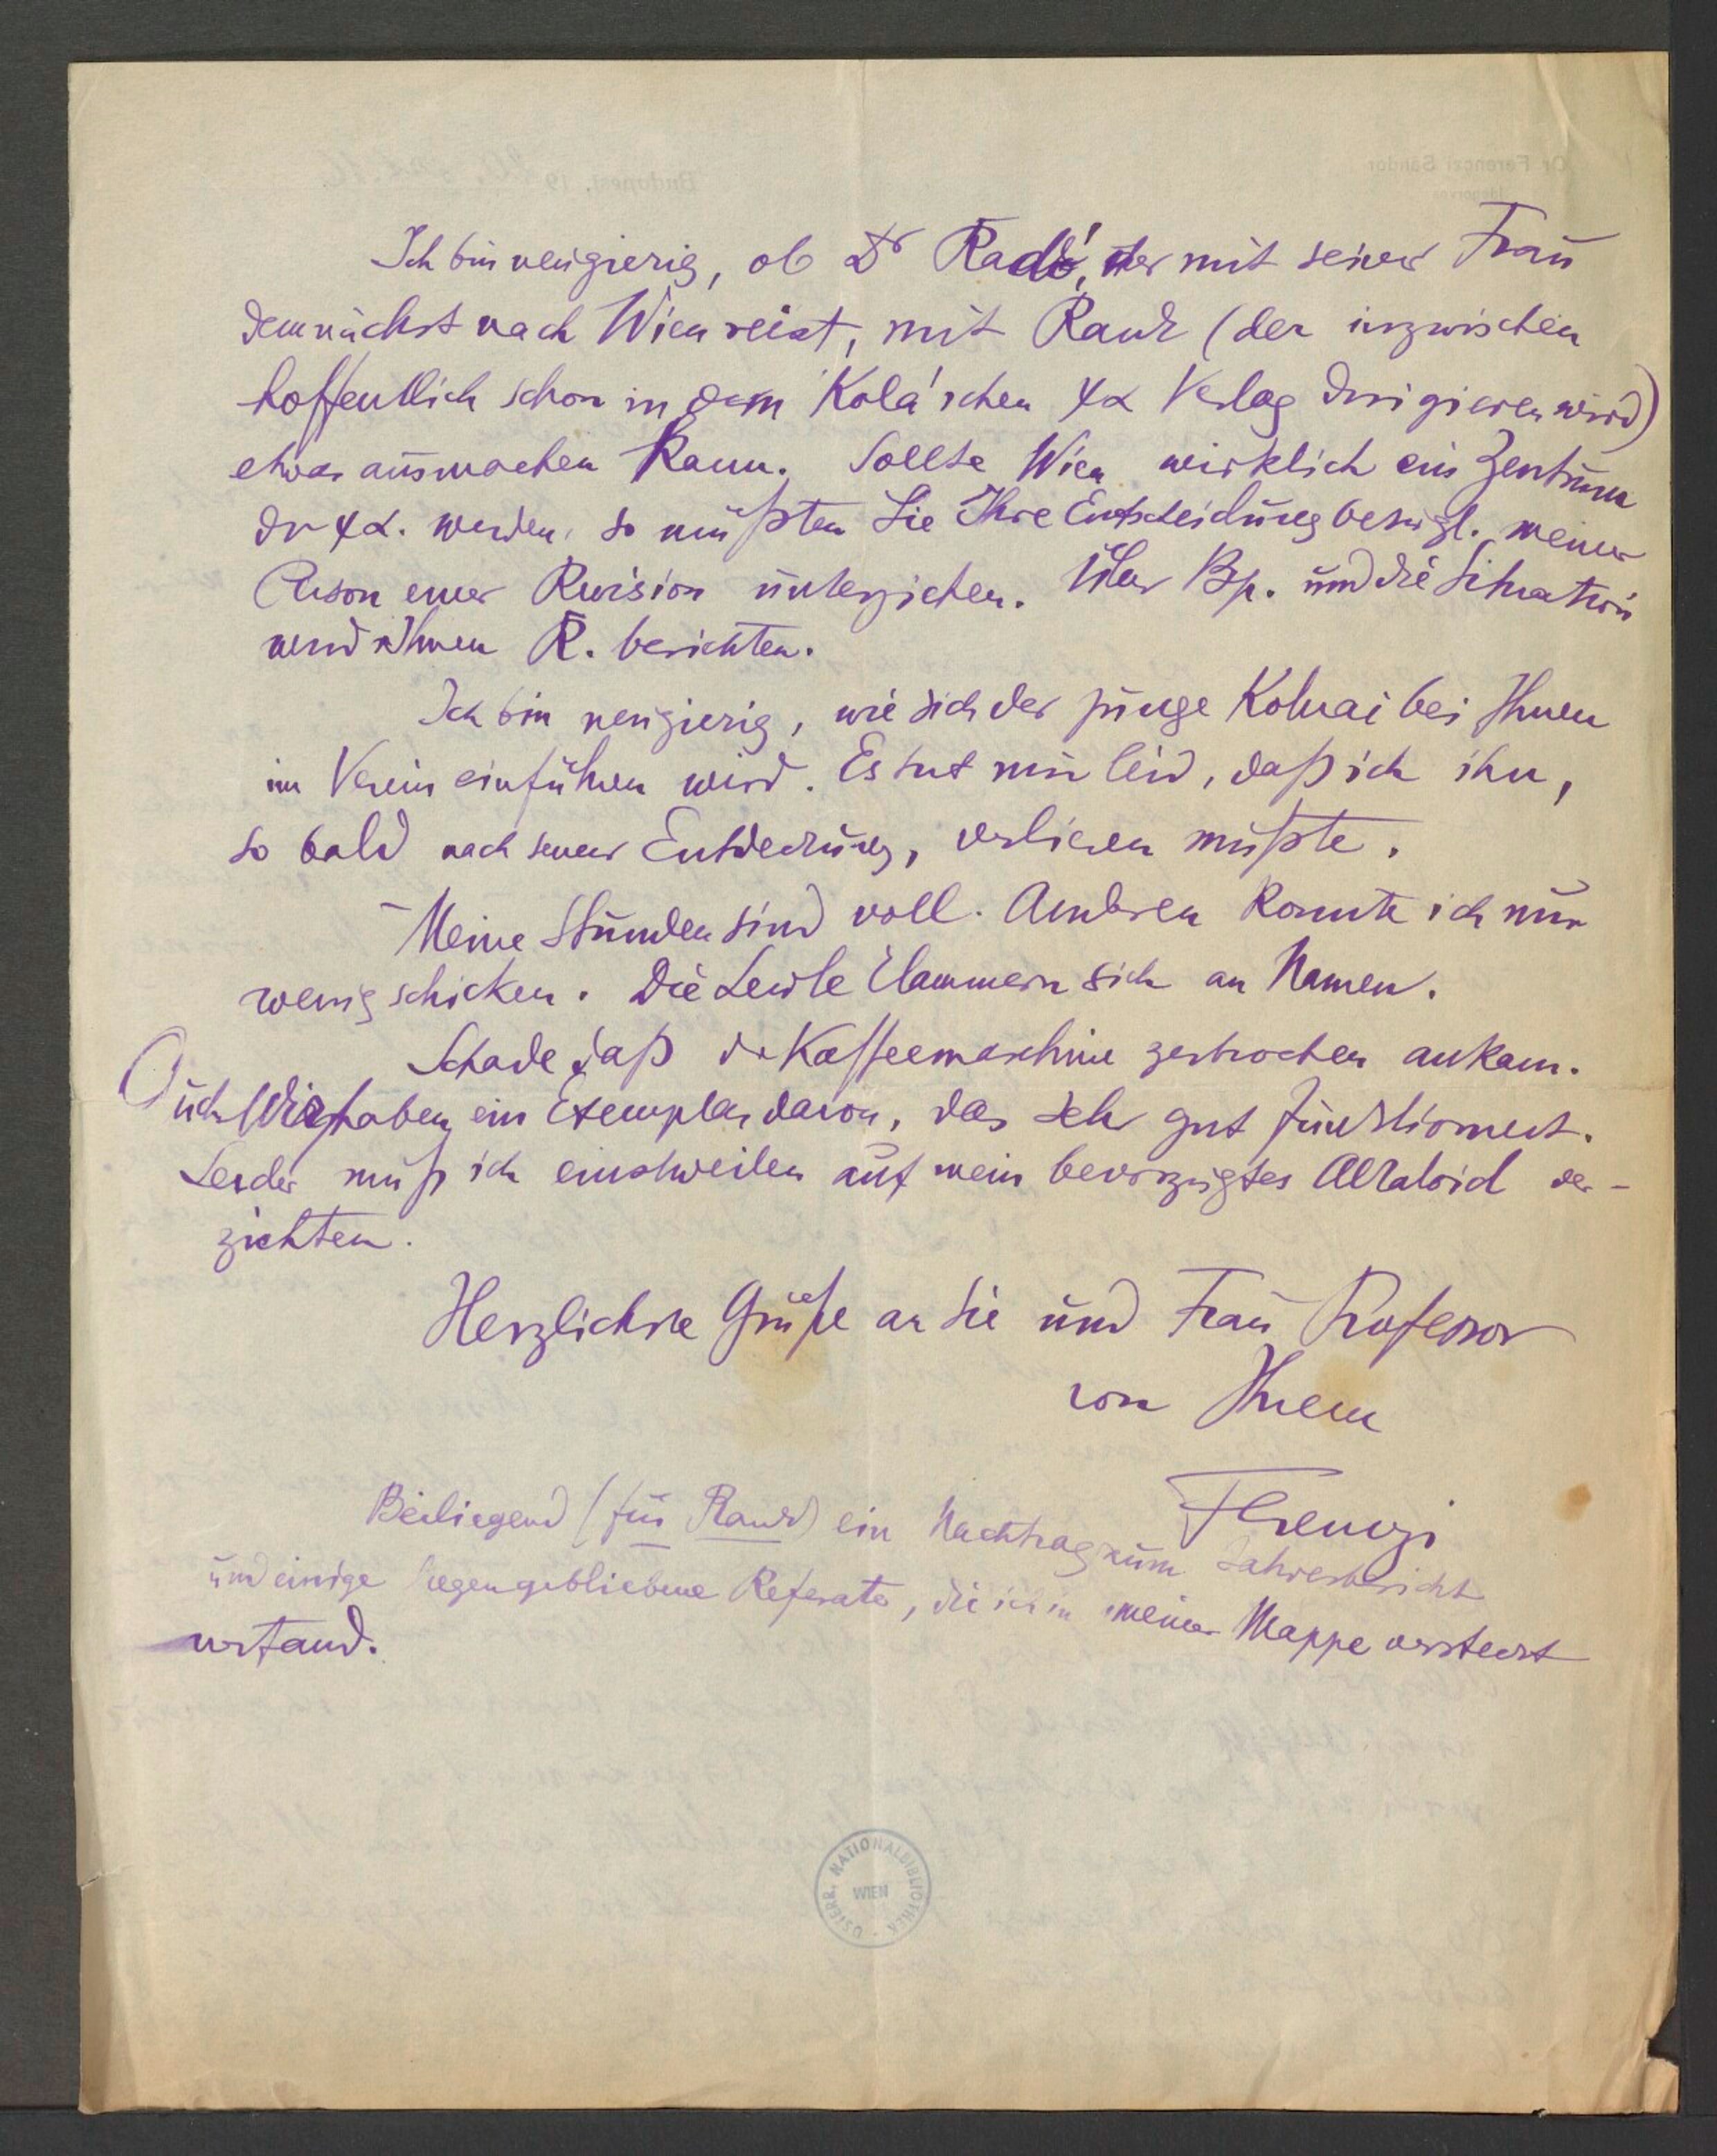 Ich bin neugierig, ob Dr Radó, der mit seiner Frau
demnächst nach Wien reist, mit Rank (der inzwischen
hoffentlich schon in dem Kola'schen ψα Verlag dirigieren wird)
etwas ausmachen kann. Sollte Wien wirklich ein Zentrum
der ψα. werden, so müßten Sie Ihre Entscheidung bezügl. meiner
Person einer Revision unterziehen. Über Bp. und die Situation
wird Ihnen R. berichten.
Ich bin neugierig, wie sich der junge Kolnai bei Ihnen
im Verein einführen wird. Es tut mir leid, daß ich ihn,
so bald nach seiner Entdeckung, verlieren mußte.
Meine Stunden sind voll. Anderen konnte ich nur
wenig schicken. Die Leute klammern sich an Namen.
Schade, daß die Kaffeemaschine zerbrochen ankam.
Auch Wir haben ein Exemplar davon, das sehr gut funktioniert.
Leider muß ich einstweilen auf mein bevorzugtes Alkaloid ver-
zichten.
Herzlichste Grüße an Sie und Frau Professor
von Ihrem
Ferenczi
Beiliegend (für Rank) ein Nachtrag zum Jahresbericht
und einige liegengebliebene Referate, die ich in meiner Mappe versteckt
vorfand.
ÖSTERR. NATIONALBIBLIOTHEK
WIEN